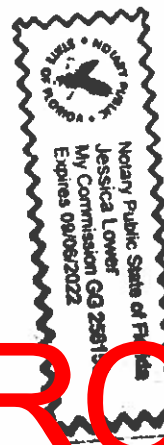 NOTARY PUBLIC
STATE OF FLORIDA
Notary Public State of Florida
Jessica Lower
My Commission GG
Expires 09/06/2022
RO